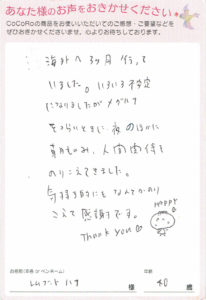 あなた様のお声をおきかせください
CoCoRoの商品をお使いいただいてのご感想・ご要望などを
ぜひおきかせくださいませ。心よりお待ちしております。
海外へ3ヶ月行って
いました。いろいろ不安定
になりましたが
夜のほかに
人間関係も
のりこえてきました。
気持ち的にもなんとかのり
こえて感謝です。
HAPPY
Thank you
お名前(本名 or ペンネーム)
様
年齢
40 歳